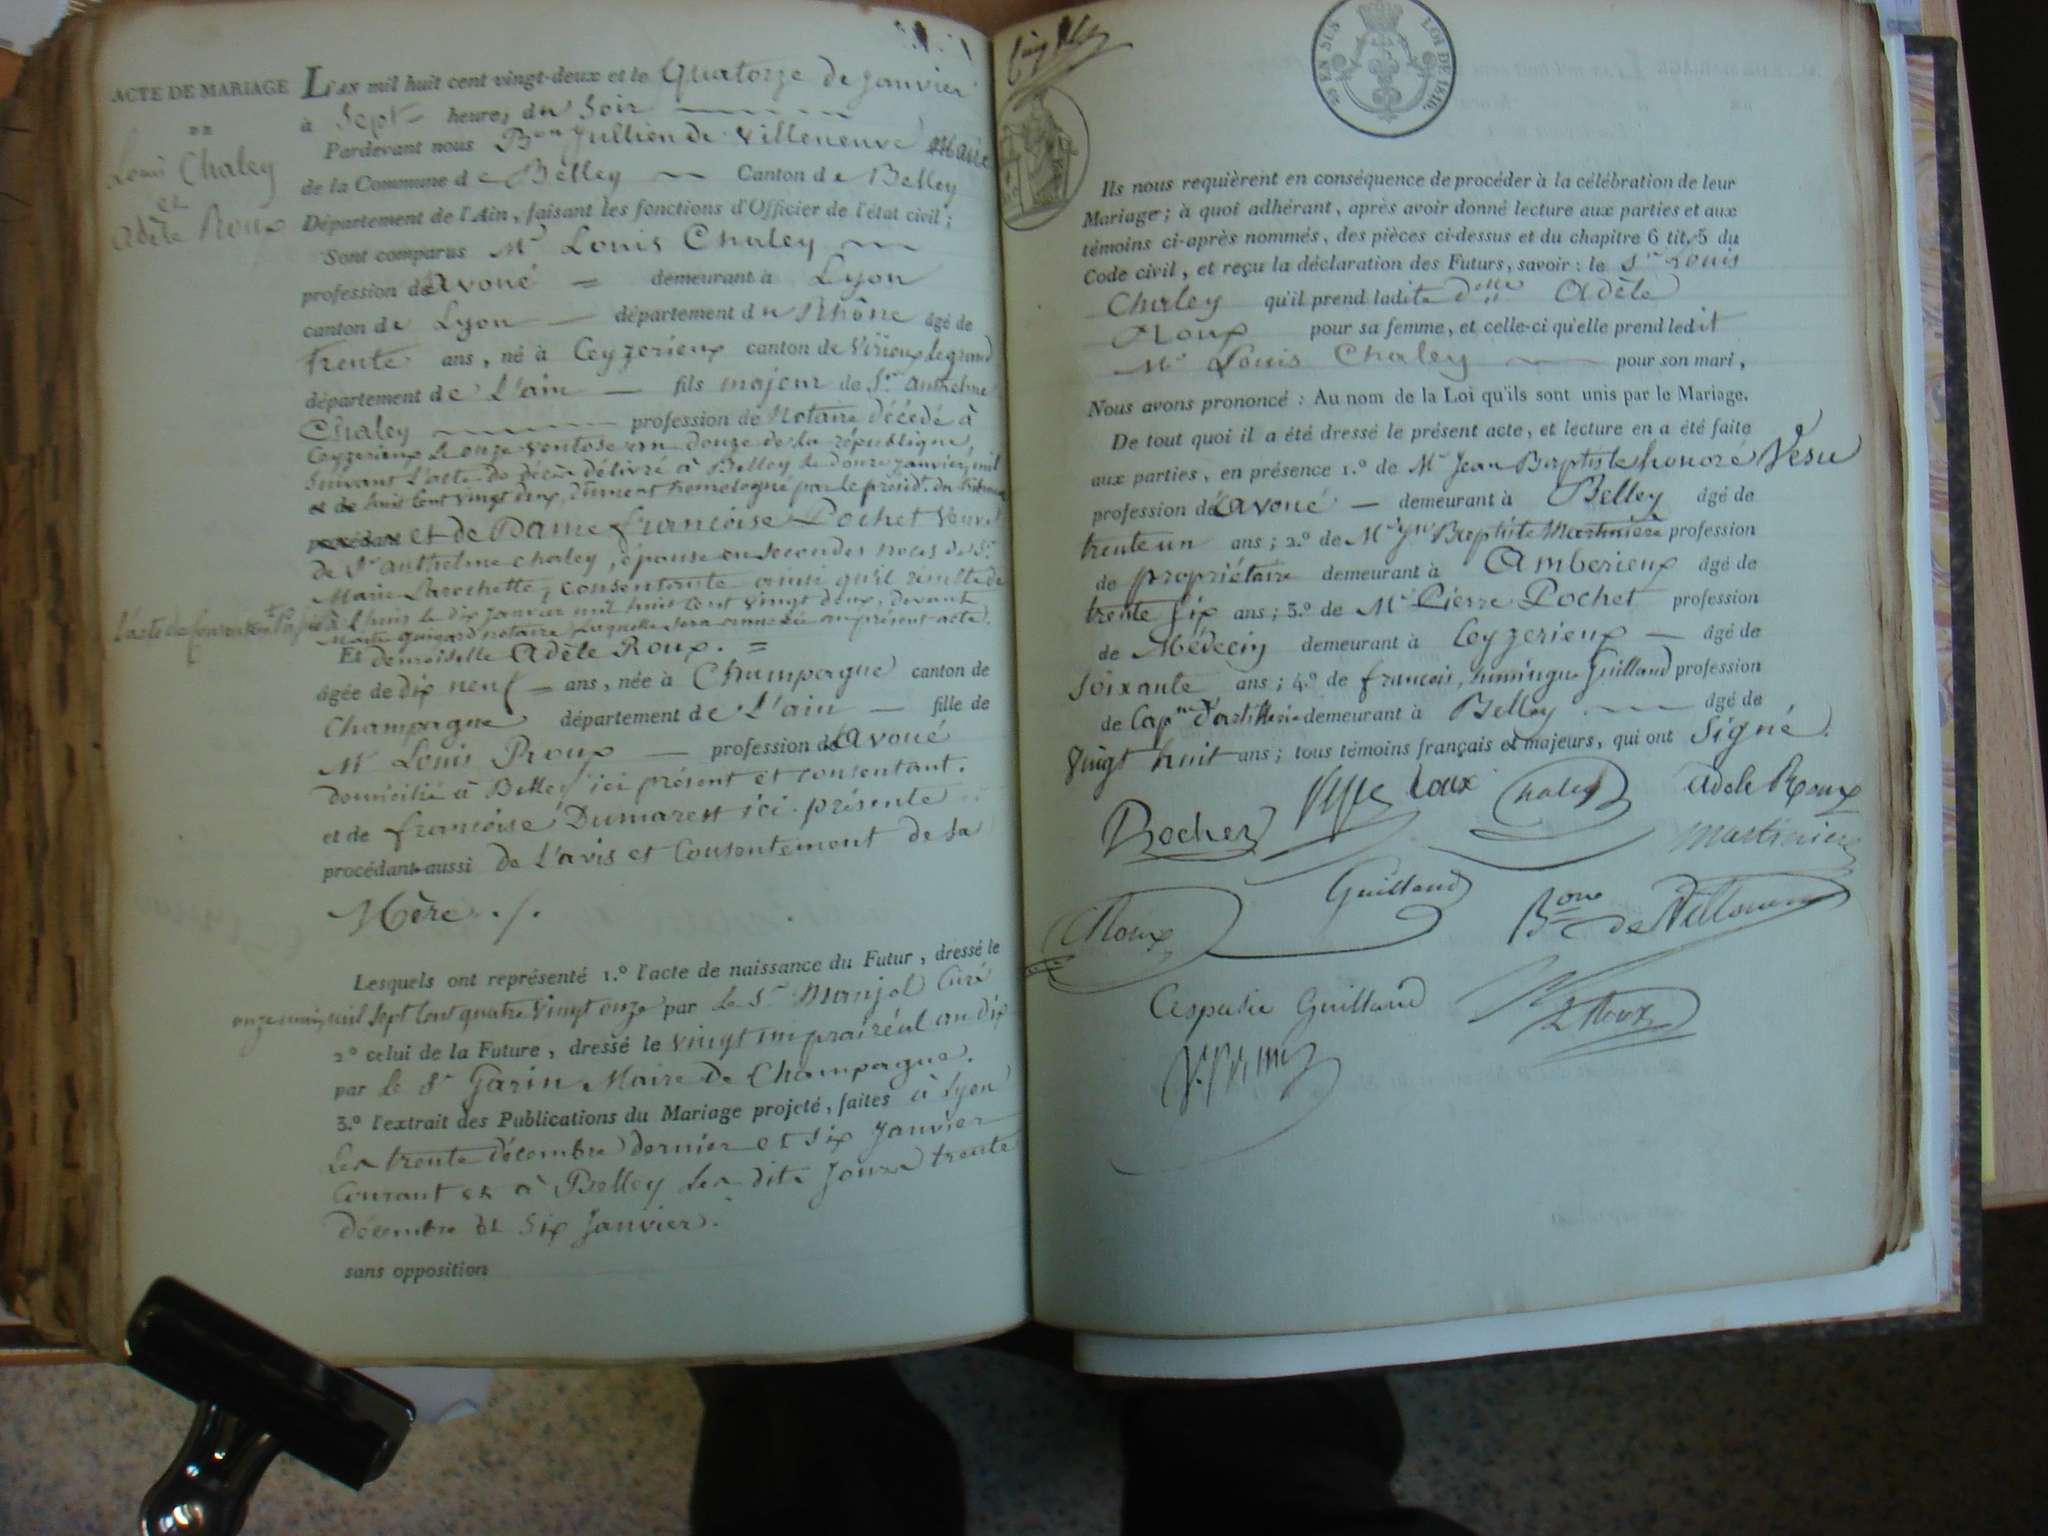 ACTE DE MARIAGE
DE
Louis Chaley
et
Adèle Roux
L'AN mil huit cent vingt-deux et le Quatorze de Janvier
à Sept heures du Soir
Pardevant nous Bon Jullien de Villeneuve Maire
de la Commune de Belley Canton de Belley
Département de l'Ain, faisant les fonctions d'Officier de l'état civil;
Sont comparus Mr Louis Chaley
profession d'avoué demeurant à Lyon
canton de Lyon département du Rhône âgé de
trente ans, né à Ceyzerieux canton de Virieux le grand
département de L'ain fils majeur de Sr anthelme
Chaley profession de Notaire décédé à
Ceyzerieux le onze ventose an douze de la république,
suivant l'acte de décès délivré à Belley le douze janvier mil
huit cent vingt deux, dûment homologué par le présidt. du
et de Dame françoise Pochet veuve
de Sr anthelme chaley, épouse en secondes noces de Sr
Marie Larochette, consentante ainsi qu'il résulte de
l'acte de consentement passé à l'huis le dix janvier mil huit cent vingt deux, devant
Maitre guigard notaire, laquelle sera annexée au présent acte.
Et demoiselle Adèle Roux. =
âgée de dix neuf ans, née à Champagne canton de
Champagne département de L'ain fille de
Mr Louis Roux profession d'avoué
domicilié à Belley ici présent et consentant.
et de françoise Dumarest ici présente
procédant aussi de l'avis et Consentement de sa
Mère ./.
Lesquels ont représenté 1.º l'acte de naissance du Futur, dressé le
onze mai mil sept cent quatre vingt onze par le Sr Monjol Curé
2º celui de la Future, dressé le vingt un prairéal an dix
par le Sr Garin Maire de Champagne.
3.º l'extrait des Publications du Mariage projeté, faites à Lyon
les trente décembre dernier et six janvier
Courant et à Belley les dits Jours trente
décembre et six Janvier.
sans opposition
EN SUS LOI DE 1816.
Ils nous requièrent en conséquence de procéder à la célébration de leur
Mariage; à quoi adhérant, après avoir donné lecture aux parties et aux
témoins ci-après nommés, des pièces ci-dessus et du chapitre 6 tit. 5 du
Code civil, et reçu la déclaration des Futurs, savoir: le Sr Louis
Chaley qu'il prend ladite delle Adèle
Roux pour sa femme, et celle-ci qu'elle prend ledit
Mr Louis Chaley pour son mari,
Nous avons prononcé: Au nom de la Loi qu'ils sont unis par le Mariage.
De tout quoi il a été dressé le présent acte, et lecture en a été faite
aux parties, en présence 1.º de Mr Jean Baptiste honoré Vesu
profession d'avoué demeurant à Belley âgé de
trente un ans; 2.º de Mr Jn Baptiste Martinière profession
de propriétaire demeurant à Amberieux âgé de
trente six ans; 3.º de Mr Pierre Pochet profession
de Médecin demeurant à Ceyzerieux âgé de
soixante ans; 4.º de françois, Guilland profession
de Capne d'artillerie demeurant à Belley âgé de
vingt huit ans; tous témoins français et majeurs, qui ont Signé.
Roux Chaley Adèle Roux
Pochet Martinière
Guilland
Roux Bon de Villeneuve
Guilland Roux